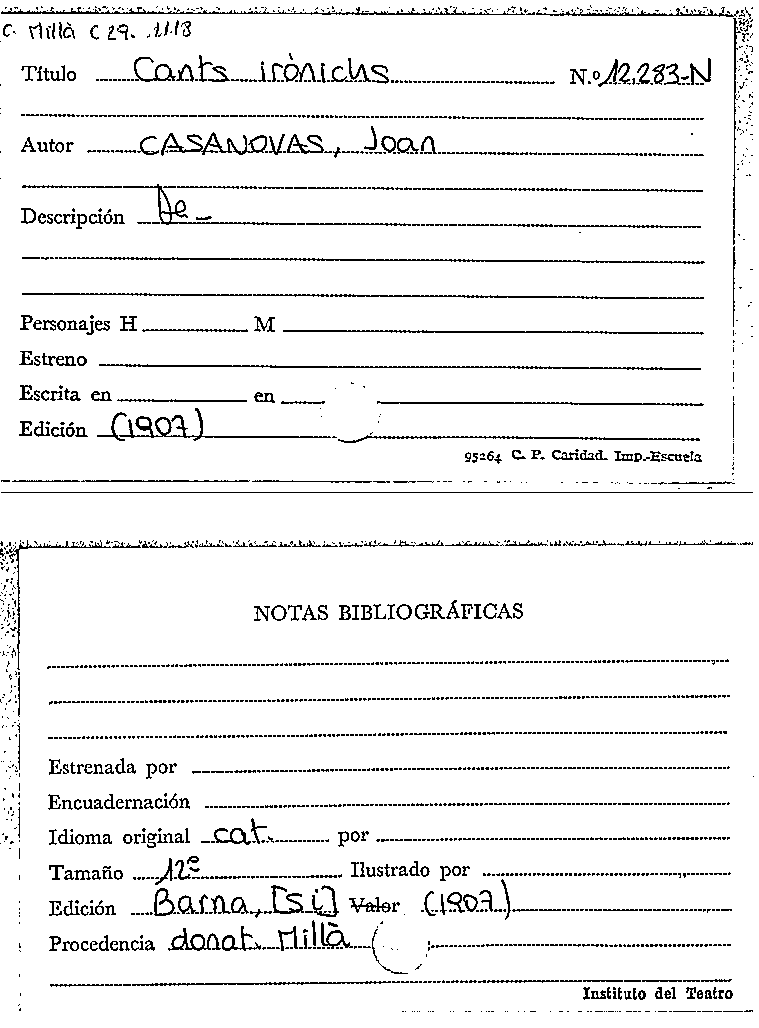 C. Millà C 29. 1118
Título Cants irònichs N.º 12.283-N
Autor CASANOVAS, Joan
Descripción
Personajes H M
Estreno
Escrita en en
Edición (1907)
95264 C. P. Caridad. Imp.-Escuela
NOTAS BIBLIOGRÁFICAS
Estrenada por
Encuadernación
Idioma original cat. por
Tamaño 12º Ilustrado por
Edición Barna, [s.i] Valor (1907)
Procedencia donat. Millà
Instituto del Teatro